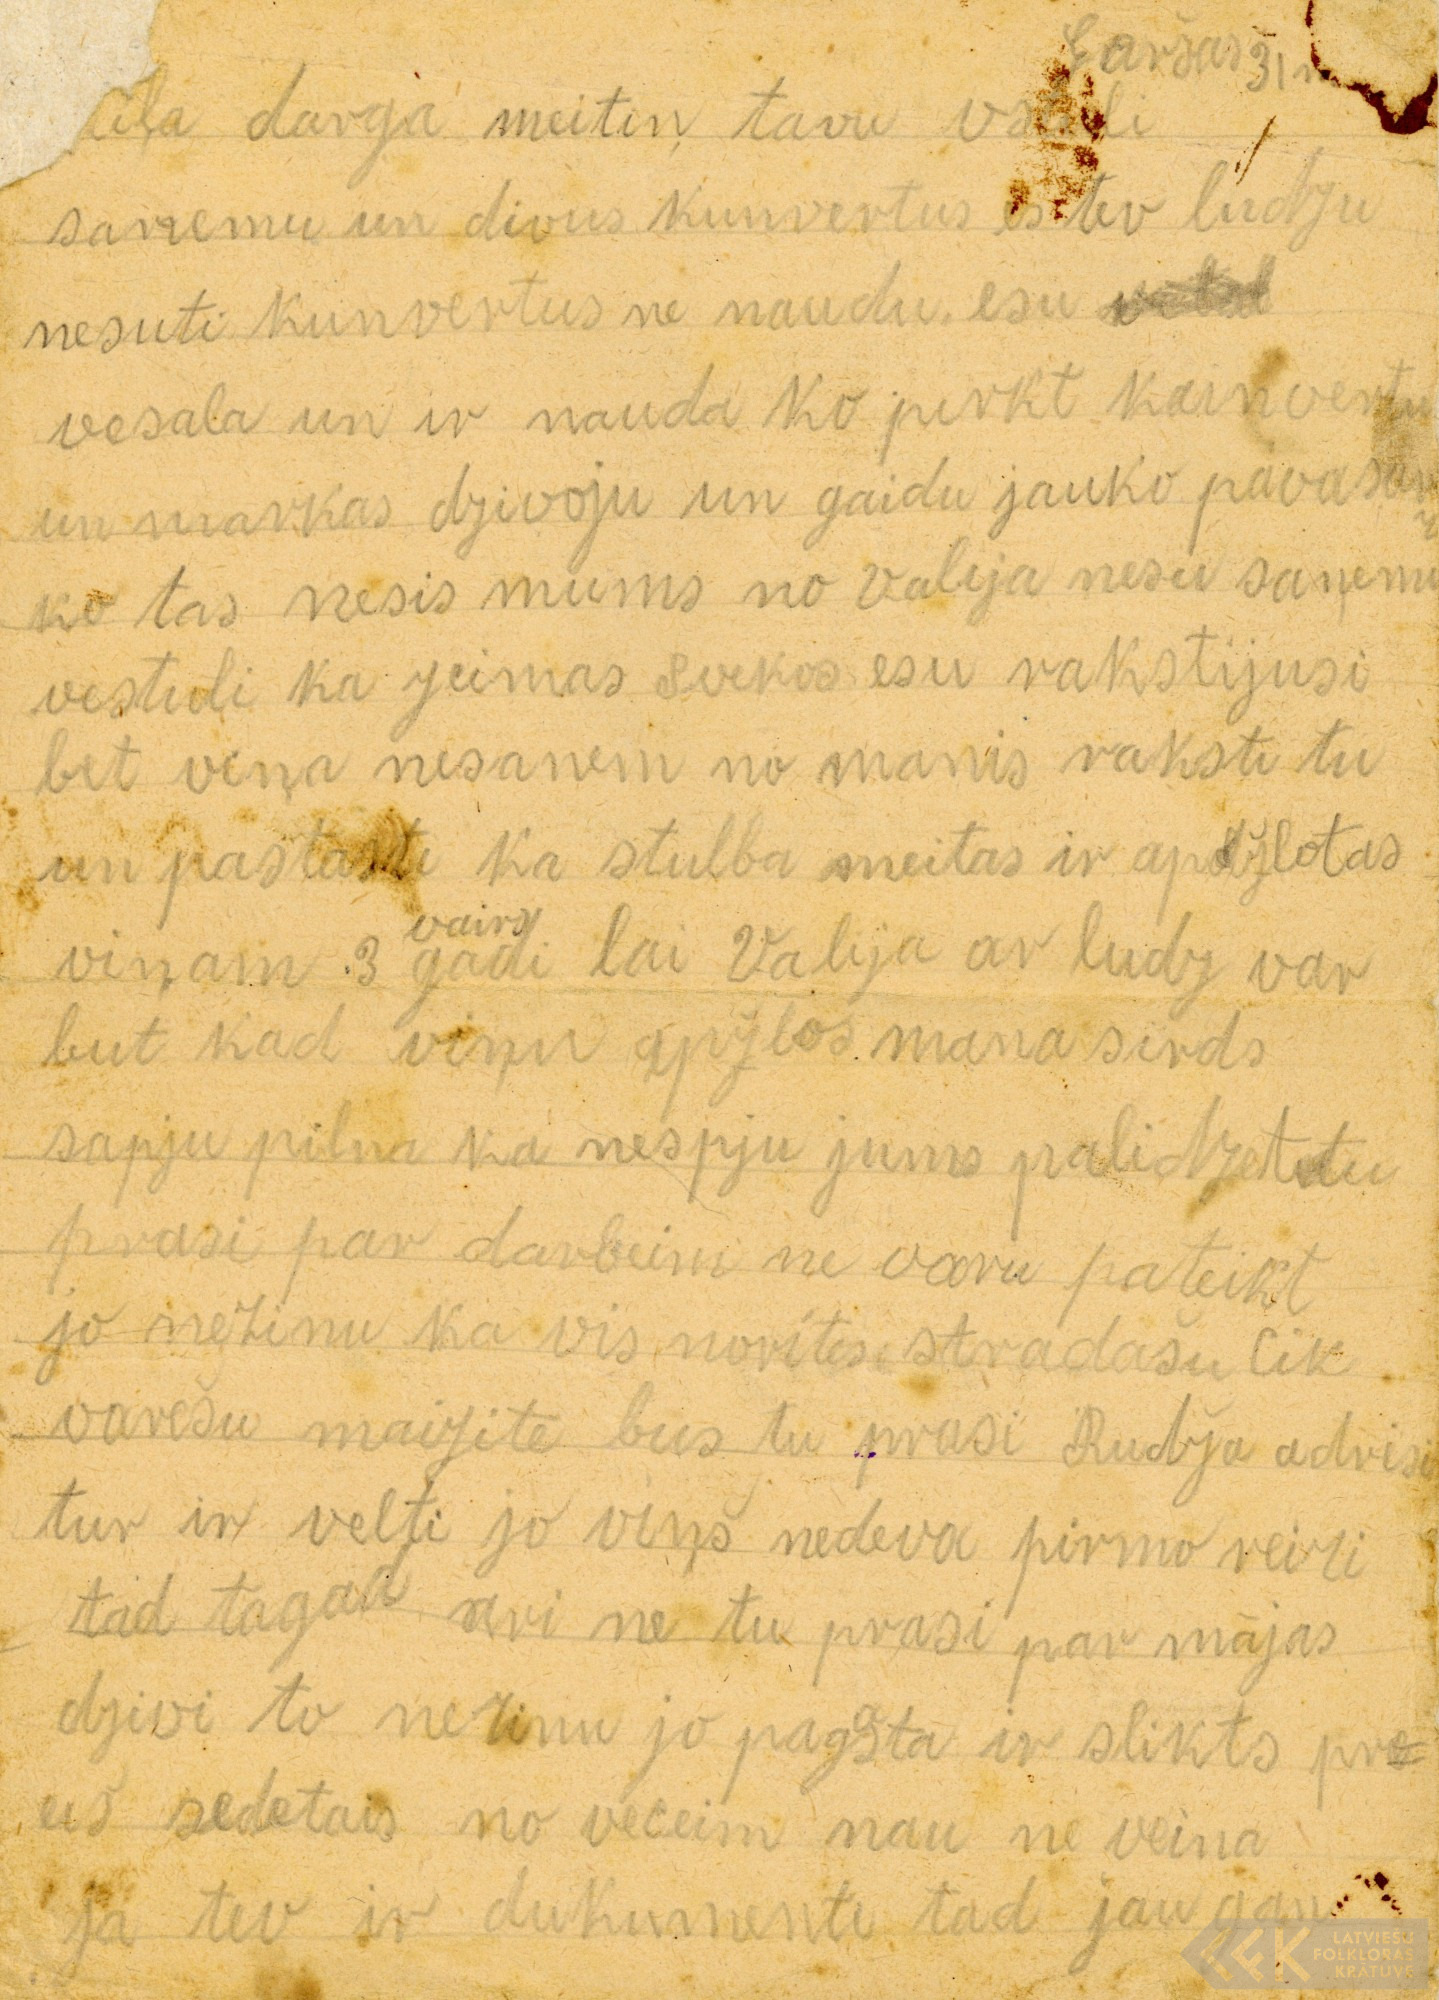 Garšas 31
darga meitiņ tavu
saņemu un divus kunvertus es tev ludzu
nesuti kunvertus ne naudu. esu
vesala un ir nauda ko pirkt kunvertu
un markas dzivoju un gaidu jauko pavasar
ko tas nesis mums no Valija nesu saņemu
vestuli ka zeimas Svekos esu rakstijusi
bet viņa nesanem no manis raksti tu
un pastasti ka stulba meitas ir apdzlotas
viņam 3 vairs gadi lai Valija ar ludz var
but kad viņu apžlos mana sirds
sapju pilna ka nespju jums palidzet tu
prasi par darbeim ne varu pateikt
jo nezinu ka vis norites stradašu cik
varešu maizite bus tu prasi Rudža adrisi
tur ir velti jo viņš nedeva pirmo reizi
tad tagad ari ne tu prasi par mājas
dzivi to nezinu jo pagasta ir slikts pre
euš sedetais no veceim nau ne veina
ja tev ir dukumenti tad jau gan
LATVIEŠU
FOLKLORAS
KRĀTUVE